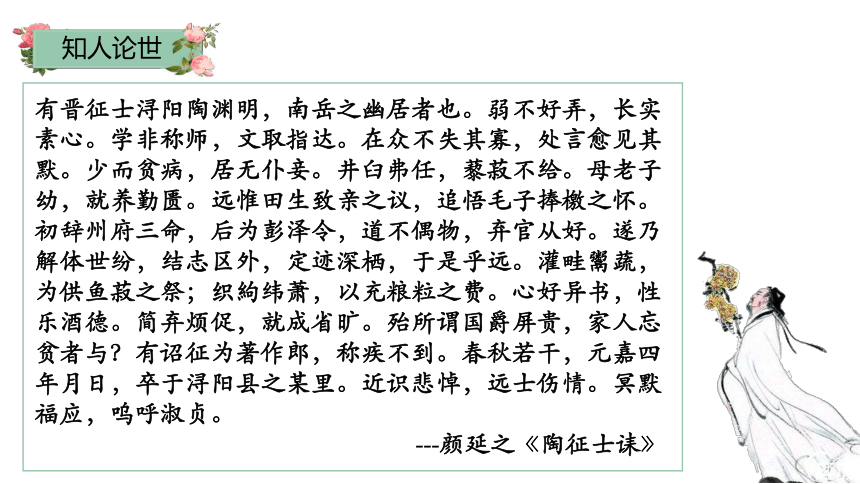 知人论世
有晋征士浔阳陶渊明，南岳之幽居者也。弱不好弄，长实
素心。学非称师，文取指达。在众不失其寡，处言愈见其
默。少而贫病，居无仆妾。井臼弗任，藜菽不给。母老子
幼，就养勤匮。远惟田生致亲之议，追悟毛子捧檄之怀。
初辞州府三命，后为彭泽令，道不偶物，弃官从好。遂乃
解体世纷，结志区外，定迹深栖，于是乎远。灌畦鬻蔬，
为供鱼菽之祭；织絇纬萧，以充粮粒之费。心好异书，性
乐酒德。简弃烦促，就成省旷。殆所谓国爵屏贵，家人忘
贫者与？有诏征为著作郎，称疾不到。春秋若干，元嘉四
年月日，卒于浔阳县之某里。近识悲悼，远士伤情。冥默
福应，呜呼淑贞。
---颜延之《陶征士诔》